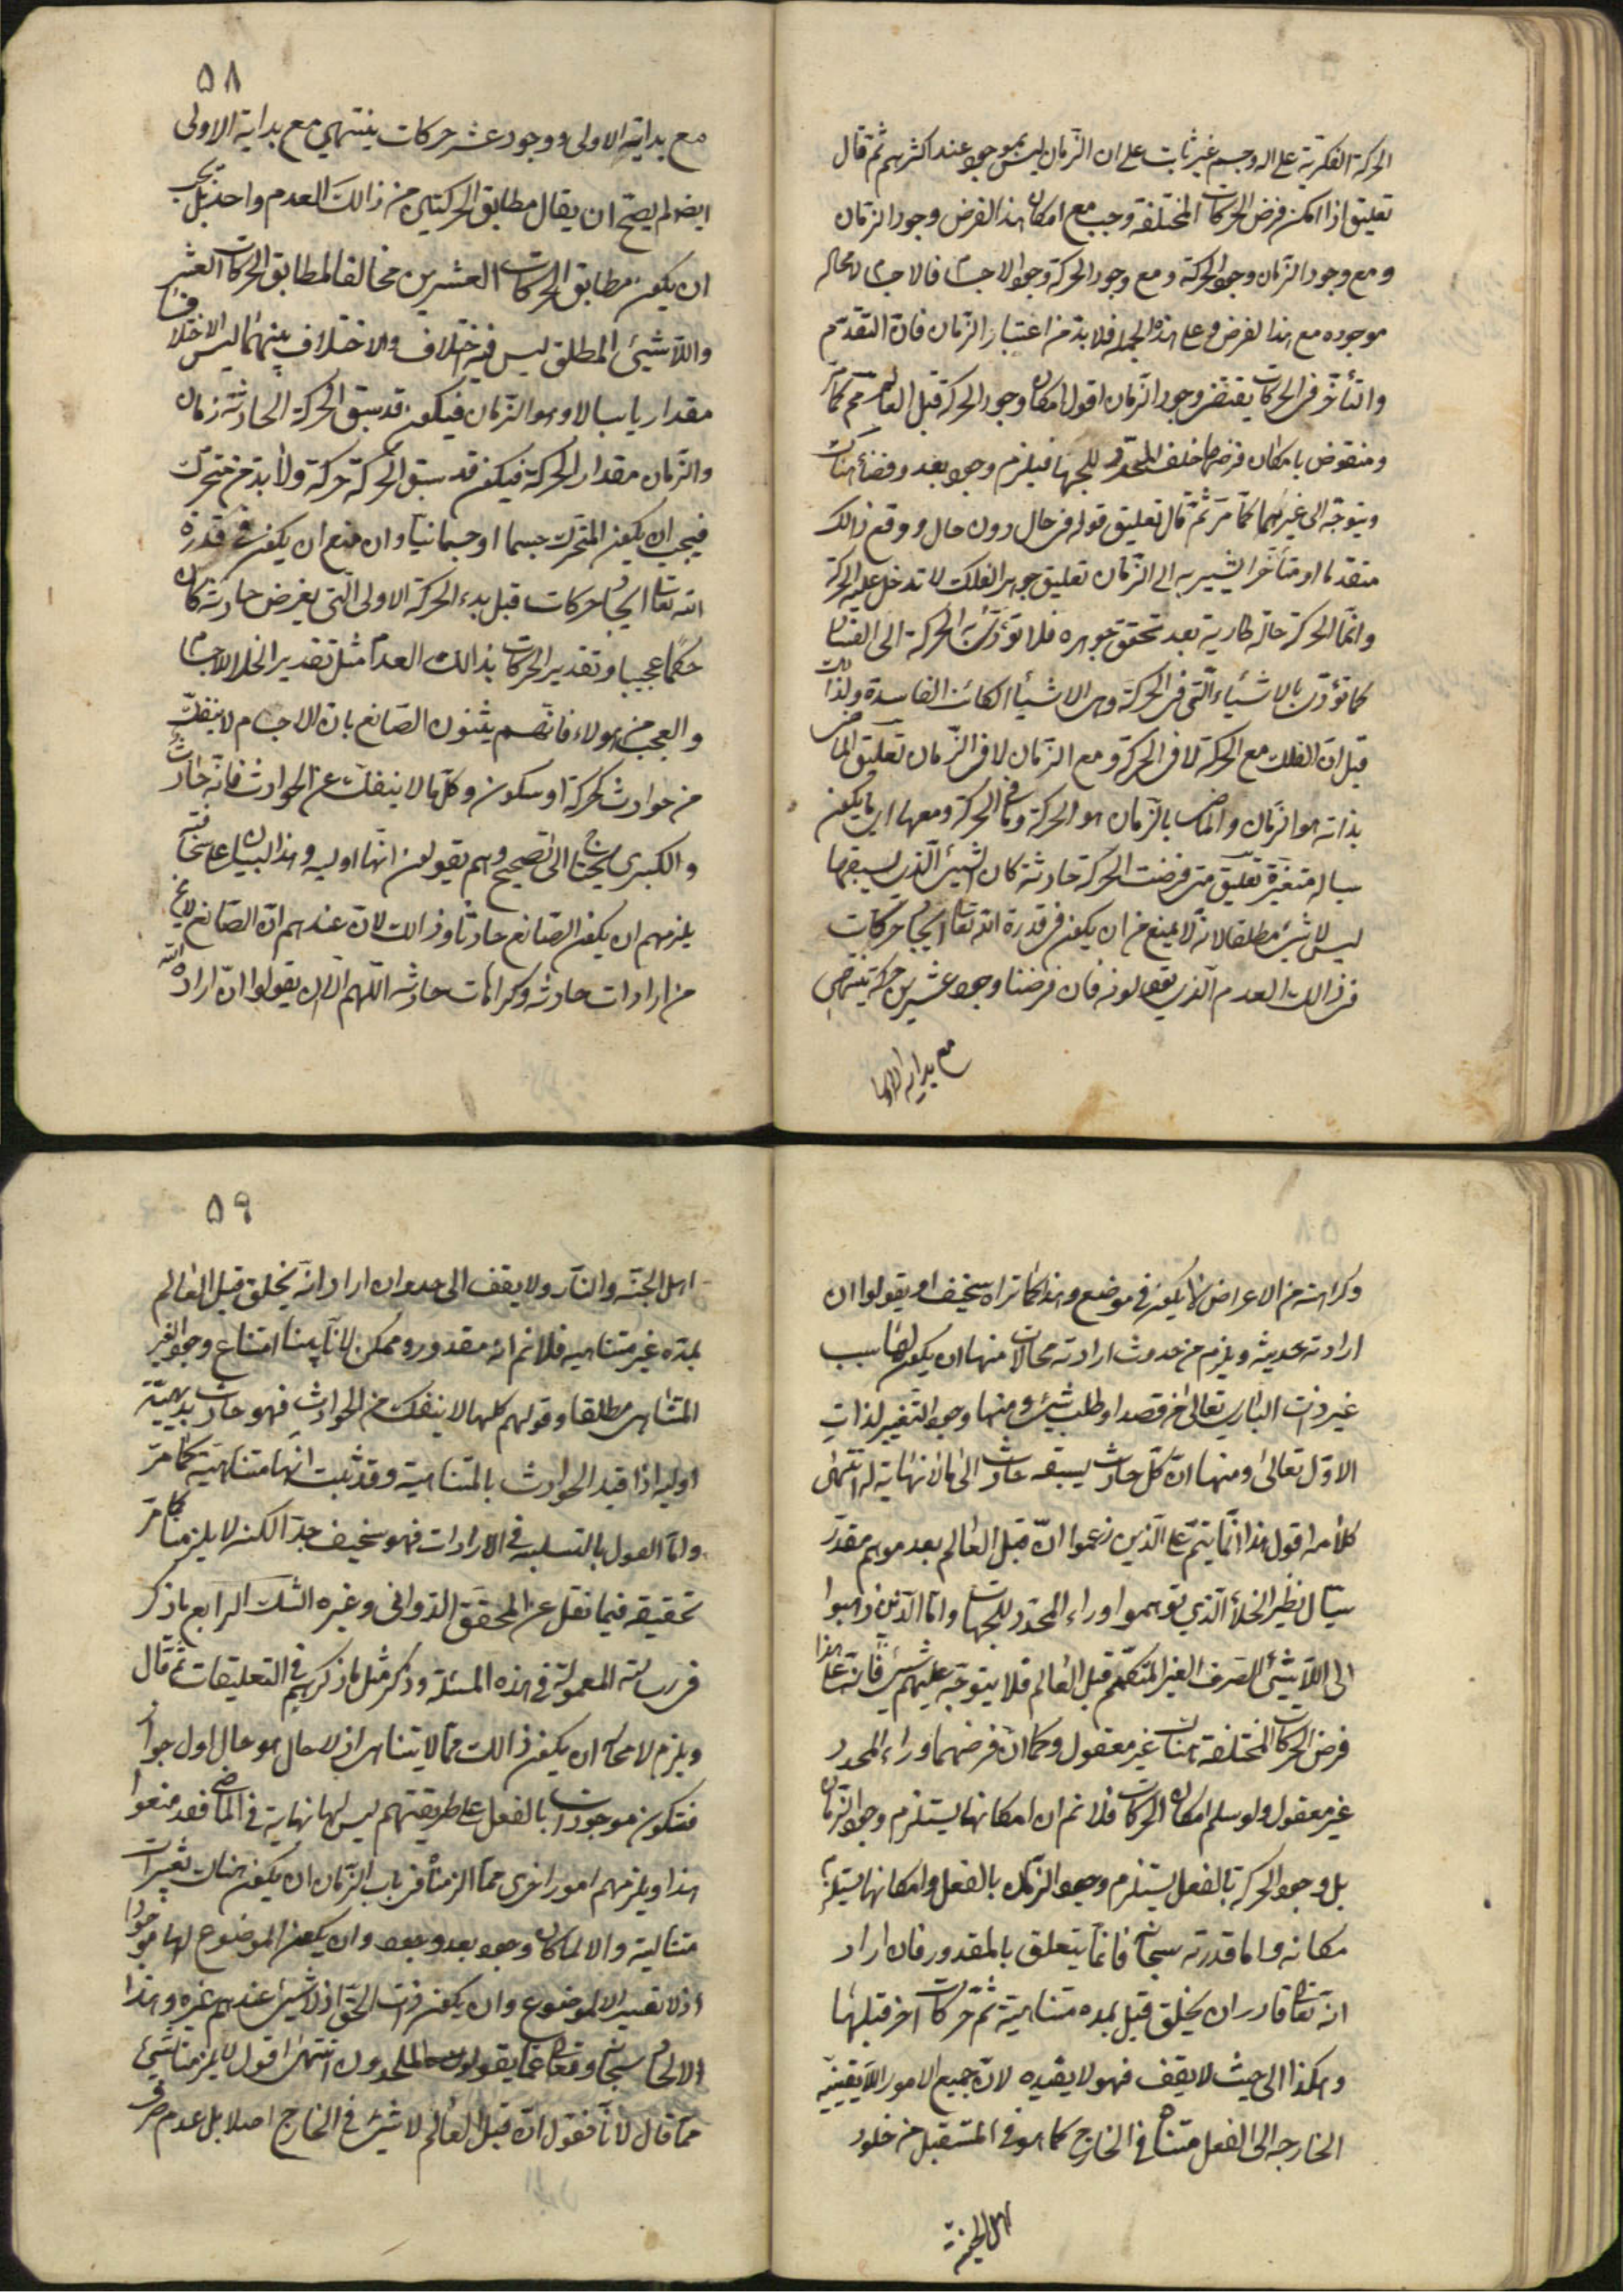 الحركة الفكرية على اله وجسم غير ثابت على ان الزمان ليس بموجود عند اكثرهم ثم قال
تعليق اذا امكن فرض الحركات المختلفة وجب مع امكان هذا الفرض وجود الزمان
و مع وجود الزمان وجود الحركة و مع وجود الحركة وجود الاجسام فالاجسام لا محاله
موجوده مع هذا لفرض و على هذه الجملة فلا بد من اعتبار الزمان فان التقدم
والتأخر فى الحركات يقتضى وجود الزمان اقول امكان وجود الحركة قبل العالم مم كما مر
ومنقوض بامكان فرضهما خلف المحدد للجهات فيلزم وجود بعد وفضاء هناك
ويتوجه الى غيرهما كما مر ثم قال تعليق قوله فى حال دون حال ووقع ذالك
متقدما او متأخرا يشير به الى الزمان تعليق جوهر الفلك لا تدخل عليه الحركة
وانما الحركة حاله طارية بعد تحقق جوهره فلا تؤدى به الحركة الى الفساد
كما تؤدى بالاشياء التى فى الحركة وهى الاشياء الكائنة الفاسدة ولذالك
قيل ان الفلك مع الحركة لا فى الحركة و مع الزمان لا فى الزمان تعليق الماضى
بذاته هو الزمان والماضى بالزمان هو الحركة وما فى الحركة ومعها اى ما يكون
سياله متغيرة تعليق متى فرضت الحركة حادثة كان الشيئ الذى يسبقها
ليس لا شيئ مطلقا لانه لا يمنع من ان يكون فى قدرة الله تعالى ايجاد حركات
فى ذالك العدم الذى يقولونه فان فرضنا وجود عشرين حركة تنتهى
مع بداية الاولى
٥٨
مع بداية الاولى ووجود عشر حركات ينتهي مع بداية الاولى
ايضا لم يصح ان يقال مطابق الحركتين من ذالك العدم واحد بل يجب
ان يكون مطابق الحركات العشرين مخالفا لمطابق الحركات العشر
واللاشيئ المطلق ليس فيه اختلاف والاختلاف بينهما ليس الا اختلافا
مقداريا سيالا وهو الزمان فيكون قد سبق الحركة الحادثة زمان
والزمان مقدار الحركة فيكون قد سبق الحركة حركة ولا بد من متحرك
فيجب ان يكون المتحرك جسما او جسمانيا وان منع ان يكون فى قدرة
الله تعالى ايجاد حركات قبل بدء الحركة الاولى التى يفرض حادثة كان
حكما عجيبا و تقدير الحركات بذالك العدم مثل تقدير الخلا للاجسام
والعجب من هولاء فانهم يثبتون الصانع بان الاجسام لا ينفك
من حوادث كحركة او سكون وكل ما لا ينفك عن الحوادث فانه حادث
والكبرى يحتاج الى تصحيح وهم يقولون انها اوليه وهذا السبيل على سخافته
يلزمهم ان يكون الصانع حادثا وذالك لان عندهم ان الصانع لا يخ
من ارادات حادثه وكراهات حادثه اللهم الا ان يقولوا ان ارادة الله
وكراهته من الاعراض لا يكون فى موضع وهذا كما تراه سخيف او يقولوا ان
ارادته محدثه ويلزم من حدوث ارادته محالات منها ان يكون لها سبب
غير ذات البارى تعالى من قصد او طلب شيئ ومنها وجود التغيير لذات
الاول تعالى ومنها ان كل حادث يسبقه حادث الى ما لا نهاية له انتهى
كلامه اقول هذا انما يتم على الذين زعموا ان قبل العالم بعد موهم مقدر
سيال نظير الخلأ الذي توهموا وراء المحدد للجهات واما الذين ذهبوا
الى اللاشيئ الصرف الغير المتكمم قبل العالم فلا يتوجه عليهم شيئ فانه على هذا
فرض الحركات المختلفة هناك غير معقول وكما ان فرضهما وراء المحدد
غير معقول ولو سلم امكان الحركات فلا نم ان امكانها يستلزم وجود الزمان
بل وجود الحركة بالفعل يستلزم وجود الزمان بالفعل وامكانها يستلزم
مكانه واما قدرته سبحانه فانما يتعلق بالمقدور فان اراد
انه تعالى قادر ان يخلق قبل بمده متناهية ثم حركات اخر قبلها
وهكذا الى حيث لا يقف فهو لا يفيده لان جميع الامور اللايقفيه
الخارجه الى الفعل متناه فى الخارج كما هو فى المستقبل من خلود
اهل الجنة
٥٩
اهل الجنه والنار ولا يقف الى حد وان اراد انه يخلق قبل العالم
بمده غير متناهيه فلا نم انه مقدور و ممكن لانا بينا امتناع وجود الغير
المتناهى مطلقا وقولهم كلما لا ينفك من الحوادث فهو حادث بديهية
اوليه اذا قيد الحوادث بالمتناهية وقد ثبت انها متناهية كما مر
واما القول بالتسلسل فى الارادات فهو سخيف جدا لكنه لا يلزمنا كما مر
تحقيقه فيما نقل عن المحقق الدوانى وغيره الشك الرابع ما ذكر
فى رسالته المعمولة فى هذه المسئلة وذكر مثل ما ذكرهم فى التعليقات ثم قال
ويلزم لا محاله ان يكون ذالك مما لا يتناهى اذ لا حال هو حال اول جواز
فتكون موجودات بالفعل على طريقتهم ليس لها نهاية فى الماضى فقد منعوا
هذا ويلزمهم امور اخرى مما الزمناه فى باب الزمان ان يكون هناك تغيرات
متتالية والا لما كان وجود بعد وجود وان يكون الموضوع لها موجودا
اذ لا تغيير الا لموضوع وان يكون ذات الحق اذ لا شيئ عندهم غيره وهذا
الالحاد سبحانه وتعالى عما يقولون الملحدون انتهى اقول لا يلزمنا شيئ
مما قال لانا نقول ان قبل العالم لا شيئ فى الخارج اصلا بل عدم صرف